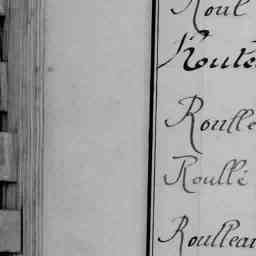 Roul
Route
Roulle
Roullé
Roulleau